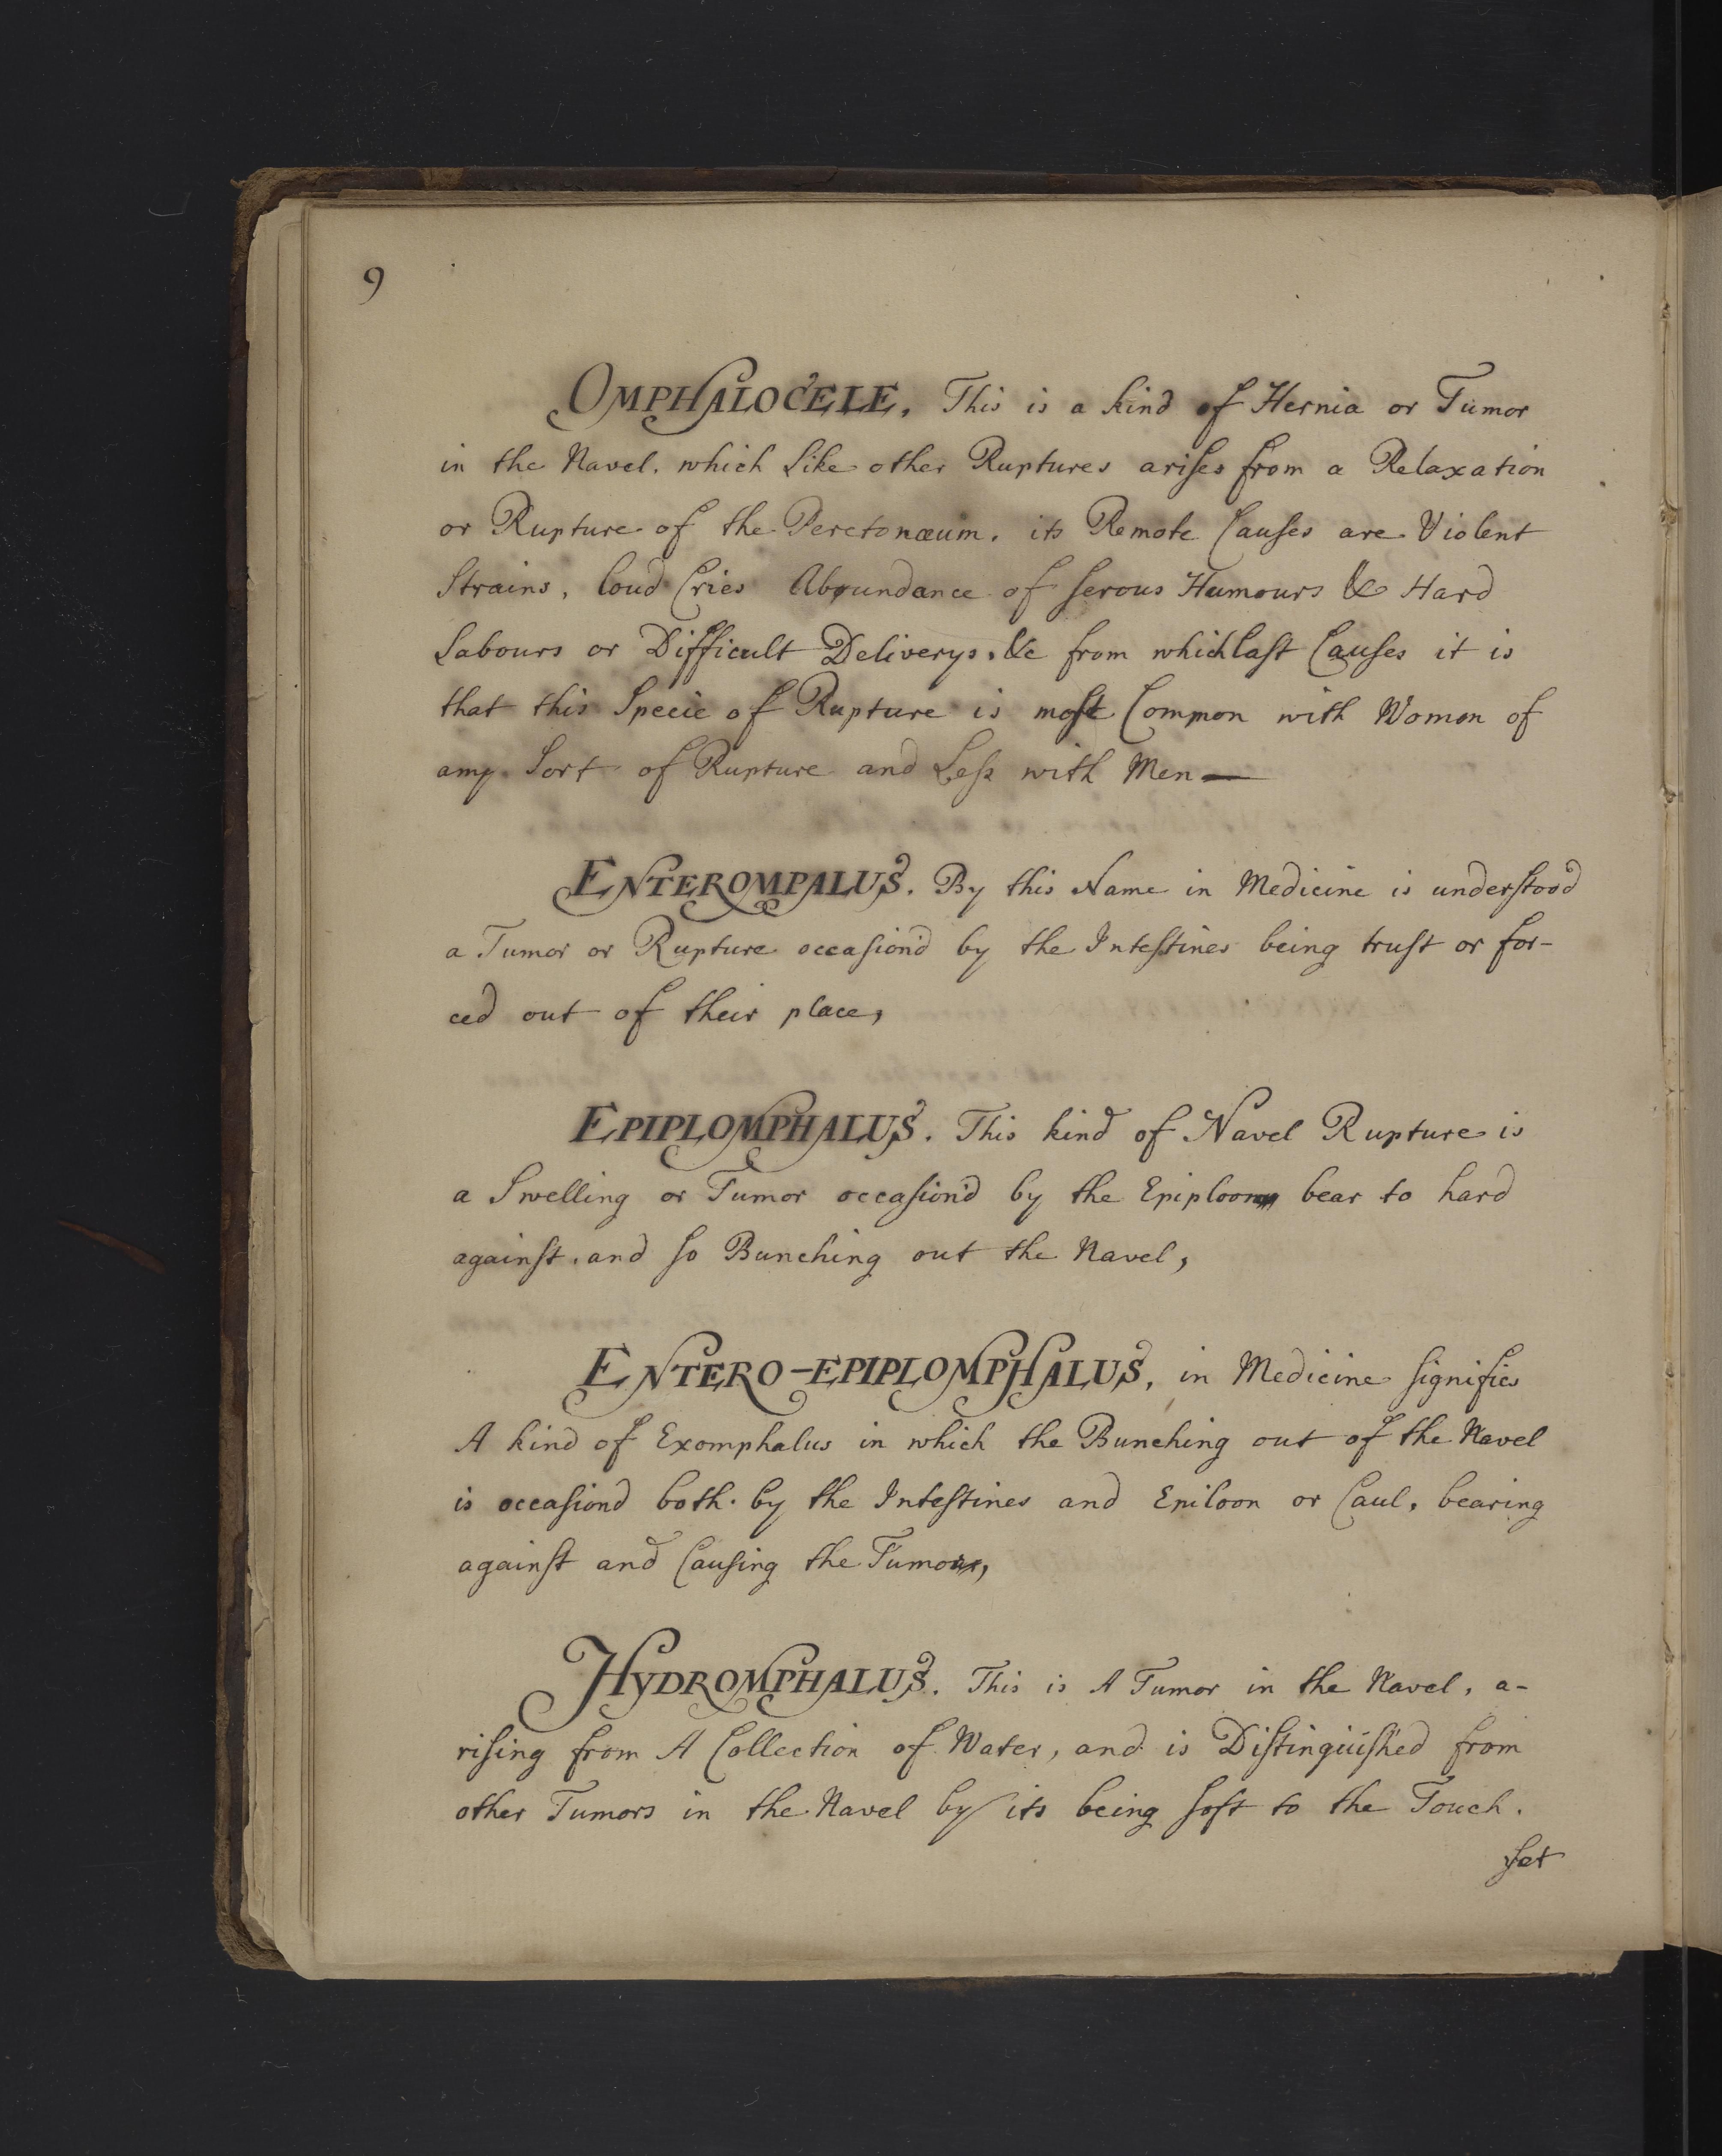 9
OMPHALOCELE. This is a kind of Hernia or Tumor
in the Navel. which Like other Ruptures ariſes from a Relaxation
or Rupture of the Peretonæum. its Remote Cauſes are Violent
Strains, loud Cries Aboundance of ſerous Humours &c Hard
Labours or Difficult Deliverys. &c from which laſt Cauſes it is
that this Specie of Rupture is moſt Common with Women of
amy Sort of Rupture and Leſs with Men —
ENTEROMPALUS. By this Name in Medicine is underſtood
a Tumor or Rupture occaſion'd by the Inteſtines being truſt or for-
ced out of their place,
EPIPLOMPHALUS. This kind of Navel Rupture is
a Swelling or Tumor occaſion'd by the Epiploon bear to hard
againſt. and ſo Bunching out the Navel,
ENTERO-EPIPLOMPHALUS, in Medicine ſignifies
A kind of Exomphalus in which the Bunching out of the Navel
is occaſiond both by the Inteſtines and Eniloon or Caul, bearing
againſt and Cauſing the Tumour,
HYDROMPHALUS. This is A Tumor in the Navel, a-
riſing from A Collection of Water, and is Diſtinguiſhed from
other Tumors in the Navel by its being ſoft to the Touch.
yet